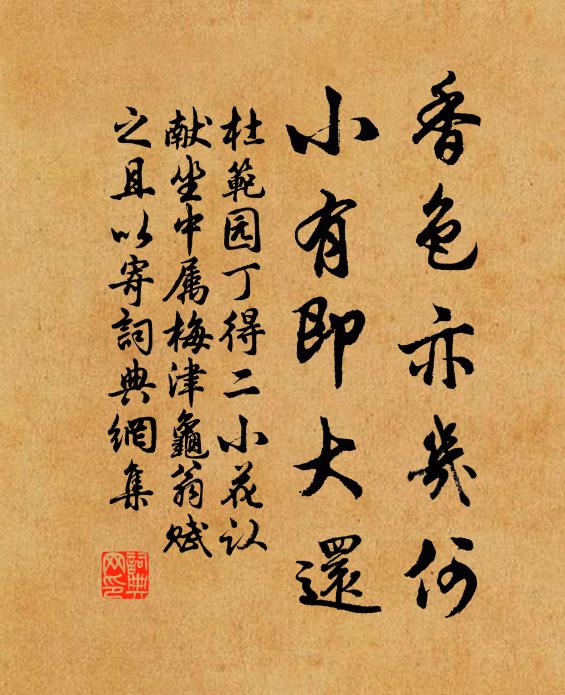 香色亦幾何
小有即大還
杜範园丁得二小花以
献坐中属梅津龜翁赋
之且以寄詞典網集
詞典
网印